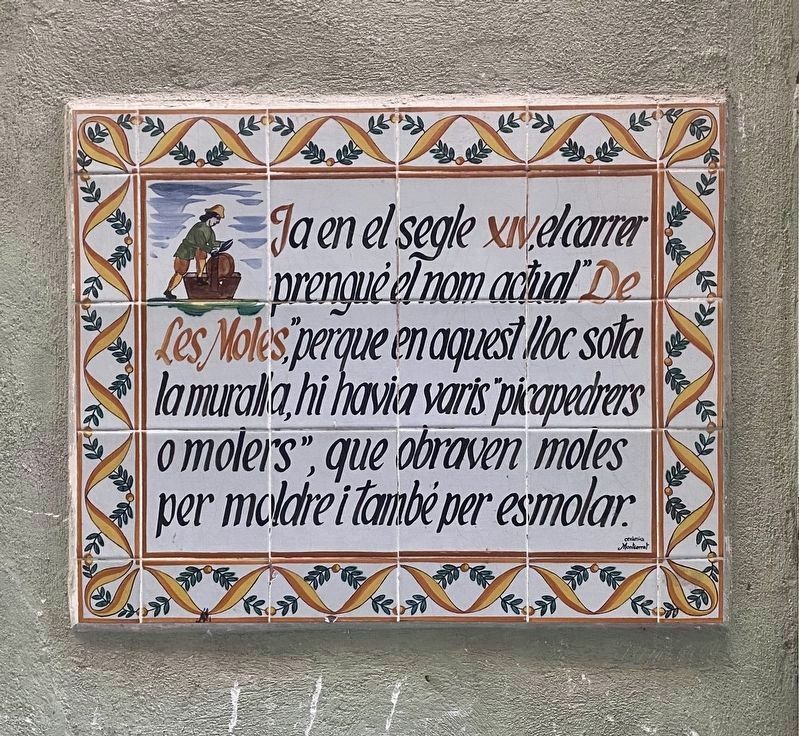 Ja en el segle XIV, el carrer
prengué el nom actual "De
Les Moles," perque en aquest lloc sota
la muralla, hi havia varis "picapedrers
o molers", que obraven moles
per moldre i també per esmolar.
ceràmica
Montserrat